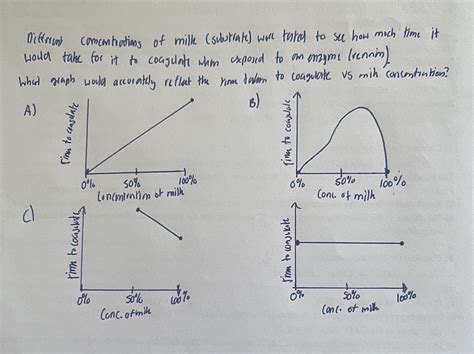 Different concentrations of milk (substrate) were tested to see how much time it
would take for it to coagulate when exposed to an enzyme (rennin).
What graph would accurately reflect the time taken to coagulate vs milk concentration?
A)
time to coagulate
0% 50% 100%
Concentration of milk
B)
time to coagulate
0% 50% 100%
Conc. of milk
C)
time to coagulate
0% 50% 100%
Conc. of milk
time to coagulate
0% 50% 100%
Conc. of milk